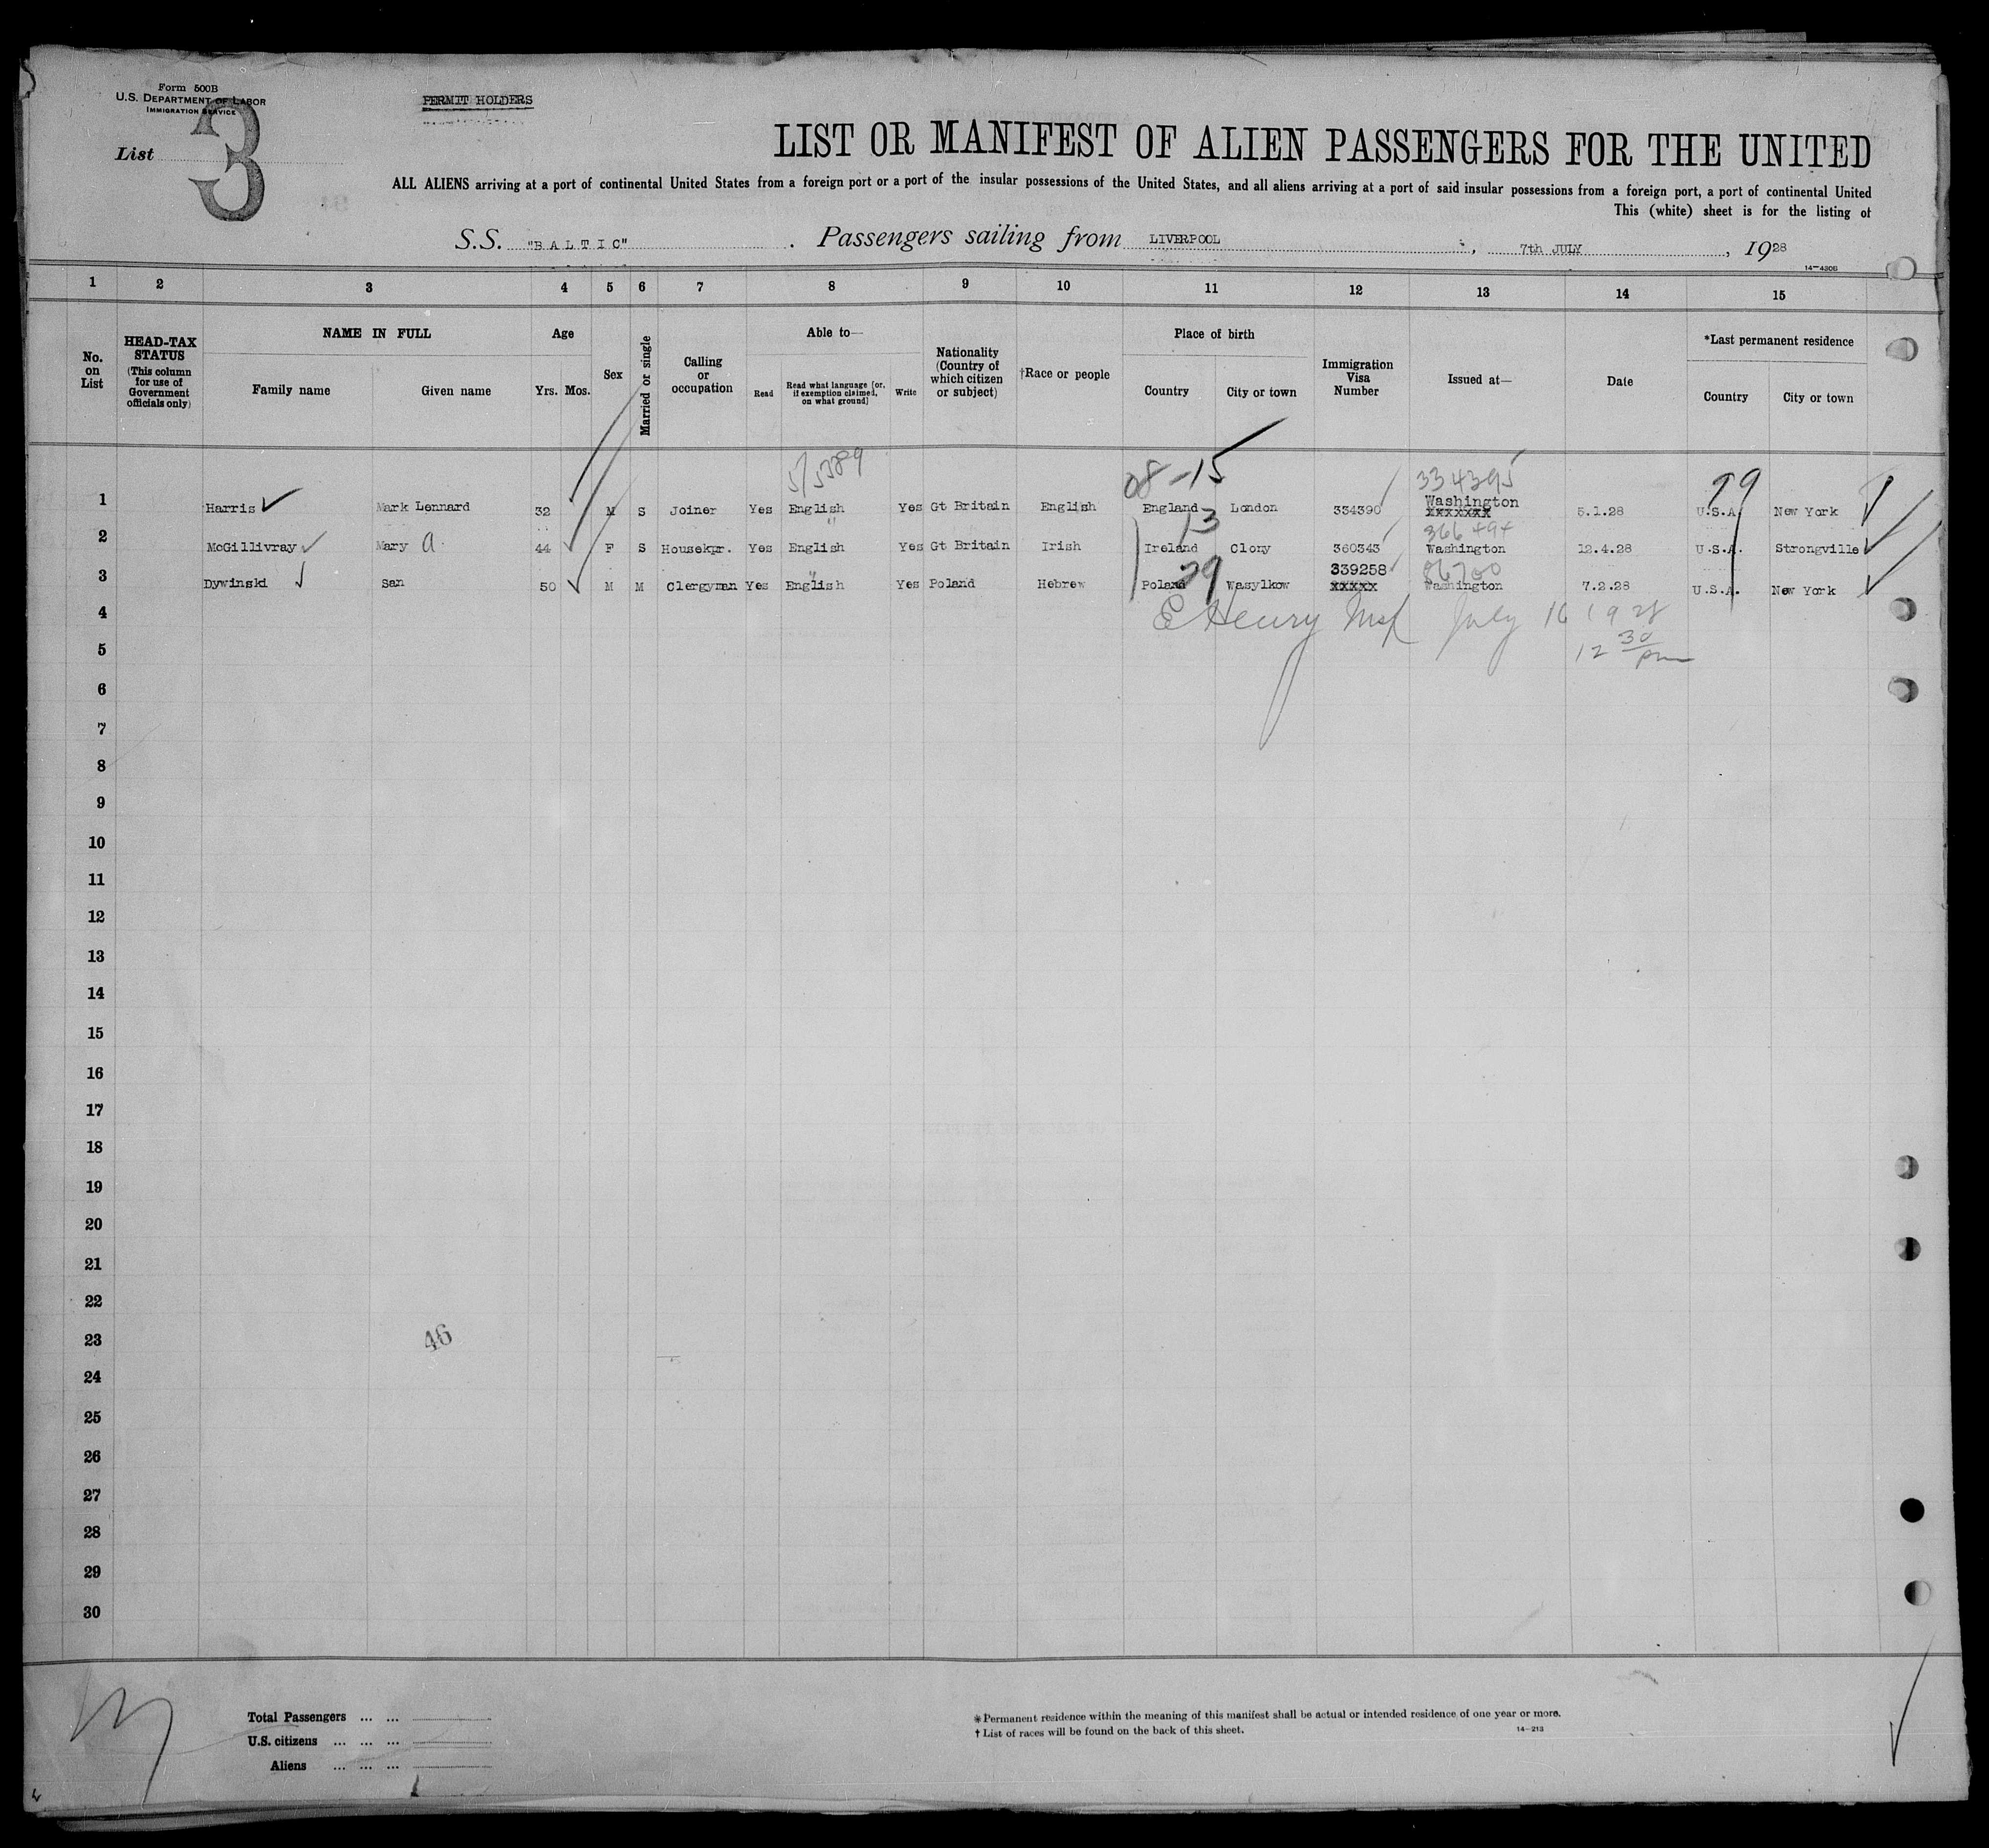 Form 500B
U.S. DEPARTMENT OF LABOR
IMMIGRATION SERVICE
PERMIT HOLDERS
List 3
LIST OR MANIFEST OF ALIEN PASSENGERS FOR THE UNITED
ALL ALIENS arriving at a port of continental United States from a foreign port or a port of the insular possessions of the United States, and all aliens arriving at a port of said insular possessions from a foreign port, a port of continental United
This (white) sheet is for the listing of
S.S. "BALTIC" . Passengers sailing from LIVERPOOL , 7th JULY , 1928
14—4206
1 2 3 4 5 6 7 8 9 10 11 12 13 14 15
No. on List
HEAD-TAX STATUS (This column for use of Government officials only)
NAME IN FULL
Family name Given name
Age
Yrs. Mos.
Sex
Married or single
Calling or occupation
Able to—
Read
Read what language [or, if exemption claimed, on what ground]
Write
Nationality (Country of which citizen or subject)
†Race or people
Place of birth
Country City or town
Immigration Visa Number
Issued at—
Date
*Last permanent residence
Country City or town
5/5389 08-15 334395 29
1 Harris Mark Lennard 32 M S Joiner Yes English Yes Gt Britain English England London 334390 Washington xxxxxxx 5.1.28 U.S.A. New York
13 366494
2 McGillivray Mary A 44 F S Housekpr. Yes English Yes Gt Britain Irish Ireland Clony 360343 Washington 12.4.28 U.S.A. Strongville
29 339258 86700
3 Dywinski San 50 M M Clergyman Yes English Yes Poland Hebrew Poland Wasylkow xxxxx Washington 7.2.28 U.S.A. New York
4 E Henry Insp July 16 1928
5 12 30 pm
6
7
8
9
10
11
12
13
14
15
16
17
18
19
20
21
22
23 46
24
25
26
27
28
29
30
Total Passengers ... ...
U.S. citizens ... ... ...
Aliens ... ... ...
* Permanent residence within the meaning of this manifest shall be actual or intended residence of one year or more.
† List of races will be found on the back of this sheet. 14—213